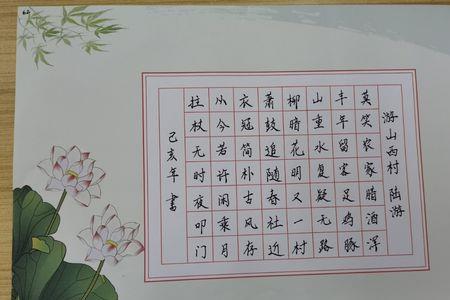 游山西村 陆游
莫笑农家腊酒浑
丰年留客足鸡豚
山重水复疑无路
柳暗花明又一村
萧鼓追随春社近
衣冠简朴古风存
从今若许闲乘月
拄杖无时夜叩门
己亥年 書